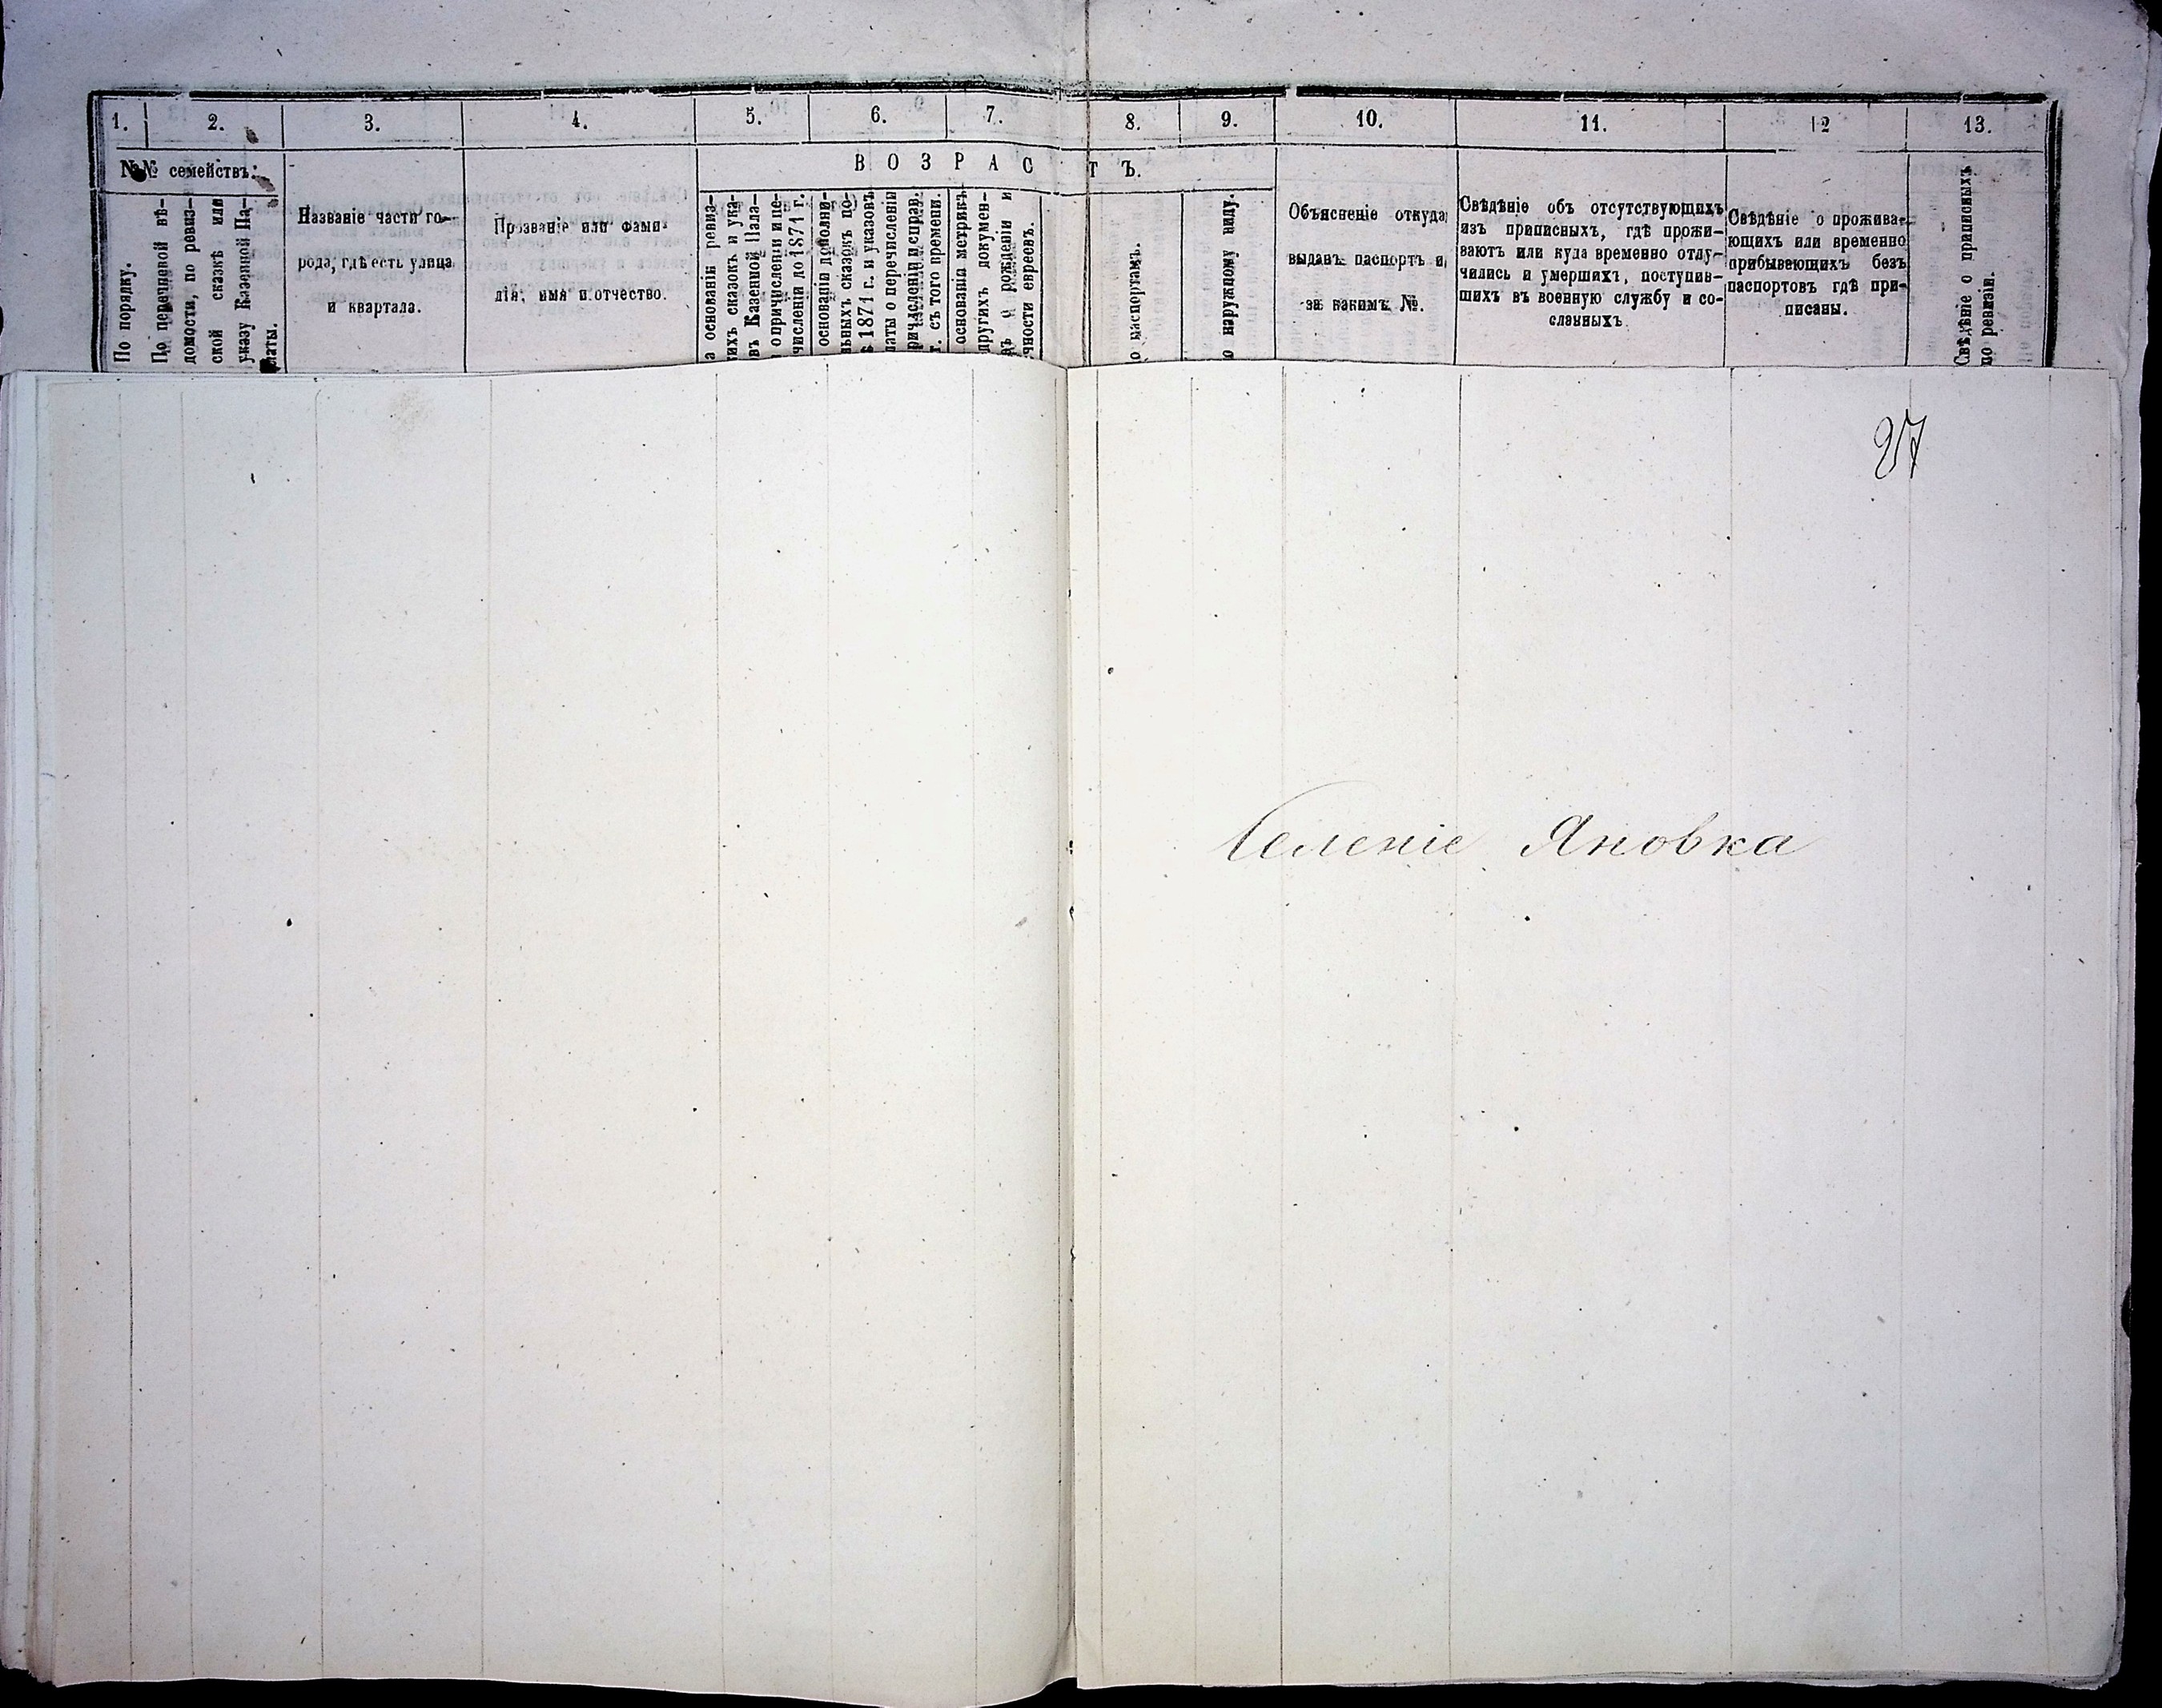 1. 2. 3. 4. 5. 6. 7. 8. 9. 10. 11. 12 13.
№№ семействъ.
ВОЗРАСТЪ.
По порядку.
По перечневой вѣ-
домости, по ревиз-
ской сказкѣ или
указу Казенной Па-
латы.
Названіе части го-
рода, гдѣ есть улица
и квартала.
Прозваніе или фами-
лія, имя и отчество.
а основаніи ревиз-
ихъ сказокъ и ука-
въ Казенной Пала-
о причисленіи и пе-
численіи до 1871 г.
основаніи дополни-
ьныхъ сказокъ по-
1871 г. и указовъ
латы о перечисленіи
ричисленіи справ.
г. съ того времени.
основаніи метрикъ
другихъ докумен-
ъ о рожденіи и
чности евреевъ.
о паспортамъ.
о наружному виду.
Объясненіе откуда
выданъ паспортъ и
за какимъ №.
Свѣдѣніе объ отсутствующихъ
изъ приписныхъ, гдѣ прожи-
ваютъ или куда временно отлу-
чились и умершихъ, поступив-
шихъ въ военную службу и со-
сланныхъ
Свѣдѣніе о прожива-
ющихъ или временно
прибывающихъ безъ
паспортовъ гдѣ при-
писаны.
Свѣдѣніе о приписныхъ
по ревизіи.
27
Селеніе Яновка